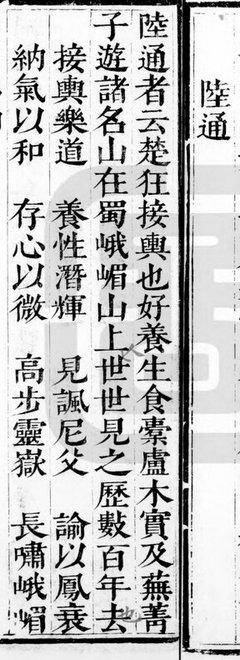 陸通
陸通者云楚狂接輿也好養生食橐盧木實及蕪菁
子遊諸名山在蜀峨嵋山上世世見之歷數百年去
接輿樂道　養性潛輝　見諷尼父　諭以鳳衰
納氣以和　存心以微　高步靈嶽　長嘯峨嵋